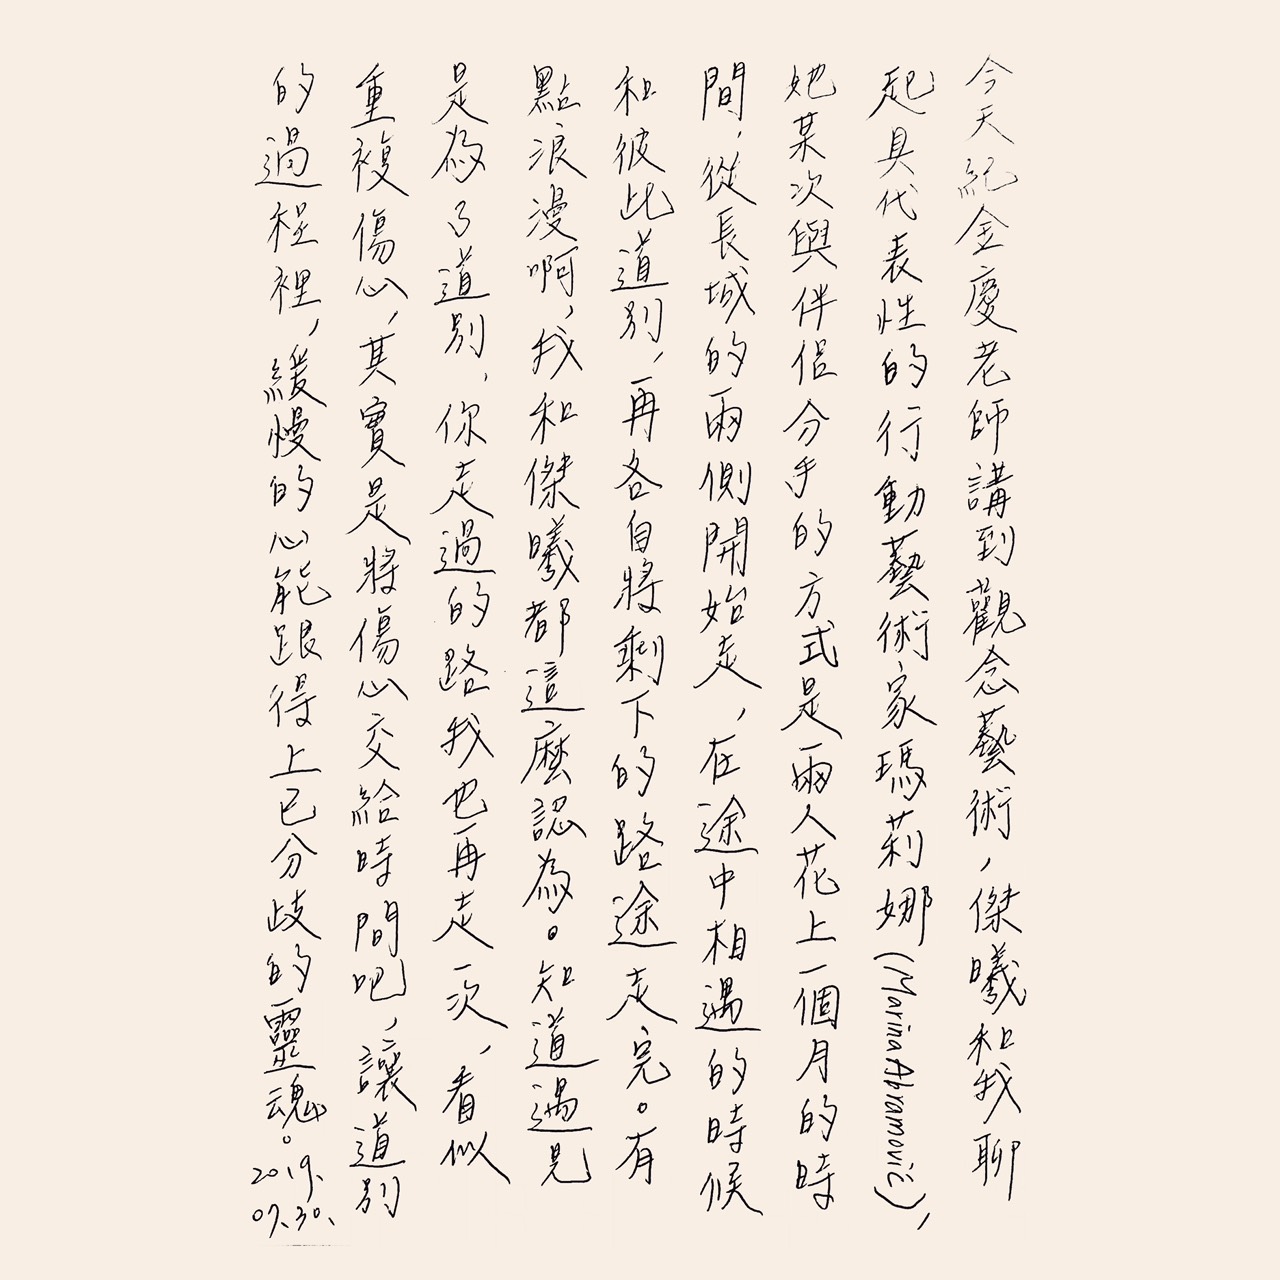 今天紀金慶老師講到觀念藝術，傑曦和我聊
起具代表性的行動藝術家瑪莉娜(Marina Abramović)，
她某次與伴侶分手的方式是兩人花上一個月的時
間，從長城的兩側開始走，在途中相遇的時候
和彼此道別，再各自將剩下的路途走完。有
點浪漫啊，我和傑曦都這麼認為。知道遇見
是為了道別，你走過的路我也再走一次，看似
重複傷心，其實是將傷心交給時間吧，讓道別
的過程裡，緩慢的心能跟得上已分歧的靈魂。
2019.
07.30.